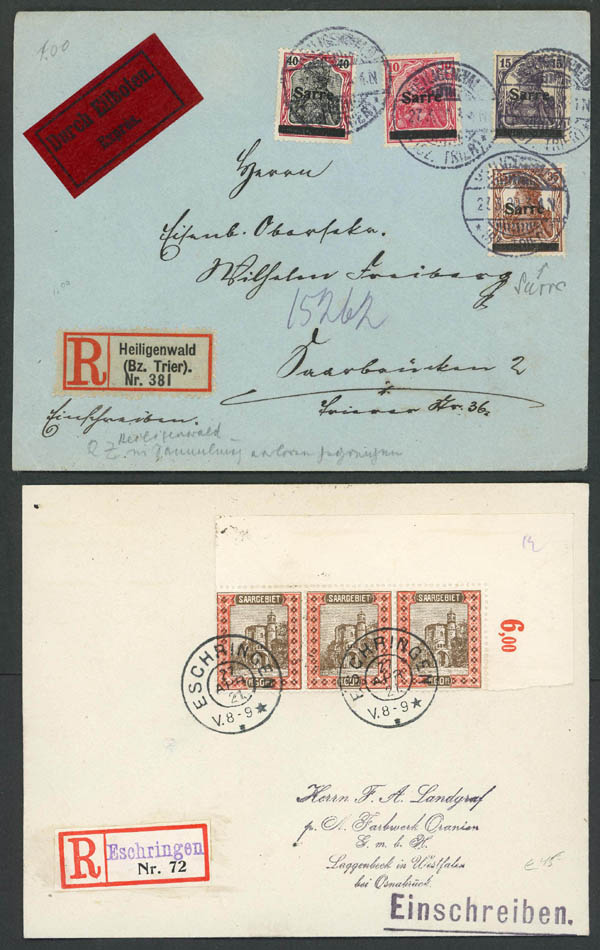 1.00
Durch Eilboten.
Exprès.
40 40
Sarre
10
Sarre
15 15
Sarre
Sarre
Herrn
Eisenb. Obersekr.
Wilhelm Freiberg
15262
Sarre
R
Heiligenwald
(Bz. Trier).
Nr. 381
Saarbrücken 2
Trierer Str. 36.
Einschreiben.
Heiligenwald
6,00
SAARGEBIET
SAARGEBIET
SAARGEBIET
ESCHRINGEN
21
V.8-9
ESCHRINGEN
V.8-9
Herrn F. A. Landgraf
p. A. Farbwerk Oranien
G. m. b. H.
Laggenbeck in Westfalen
bei Osnabrück.
R
Eschringen
Nr. 72
Einschreiben.